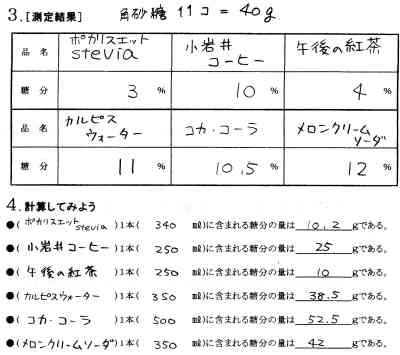 3.[測定結果] 角砂糖 11コ = 40g
品名 ポカリスエット stevia 小岩井 コーヒー 午後の紅茶
糖分 3 % 10 % 4 %
品名 カルピス ウォーター コカ・コーラ メロンクリーム ソーダ
糖分 11 % 10.5 % 12 %
4.計算してみよう
●(ポカリスエット stevia)1本( 340 ㎖)に含まれる糖分の量は 10.2 gである。
●(小岩井コーヒー)1本( 250 ㎖)に含まれる糖分の量は 25 gである。
●(午後の紅茶)1本( 250 ㎖)に含まれる糖分の量は 10 gである。
●(カルピスウォーター)1本( 350 ㎖)に含まれる糖分の量は 38.5 gである。
●(コカ・コーラ)1本( 500 ㎖)に含まれる糖分の量は 52.5 gである。
●(メロンクリームソーダ)1本( 350 ㎖)に含まれる糖分の量は 42 gである。